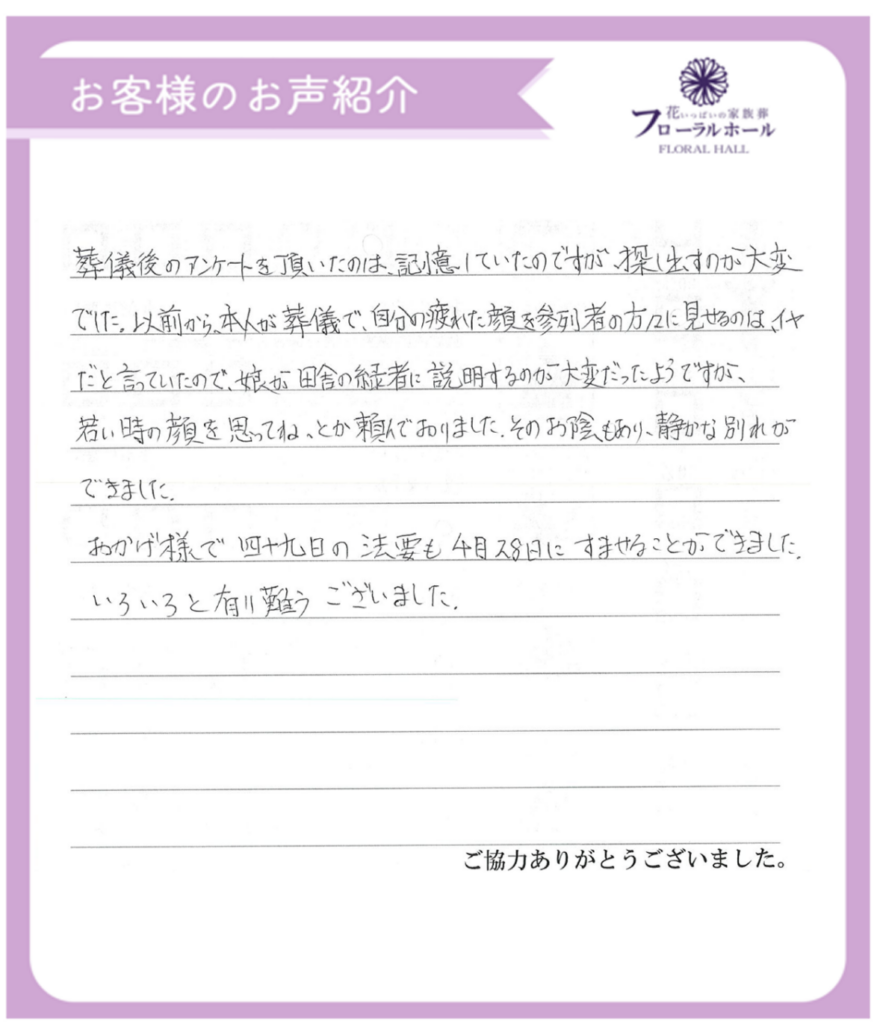 お客様のお声紹介
花いっぱいの家族葬
フローラルホール
FLORAL HALL
葬儀後のアンケートを頂いたのは、記憶していたのですが、探し出すのが大変
でした。以前から、本人が葬儀で、自分の疲れた顔を参列者の方々に見せるのは、イヤ
だと言っていたので、娘が田舎の縁者に説明するのが大変だったようですが、
若い時の顔を思ってね、とか頼んでおりました。そのお陰もあり、静かな別れが
できました。
おかげ様で四十九日の法要も4月28日にすませることができました。
いろいろと有り難うございました。
ご協力ありがとうございました。